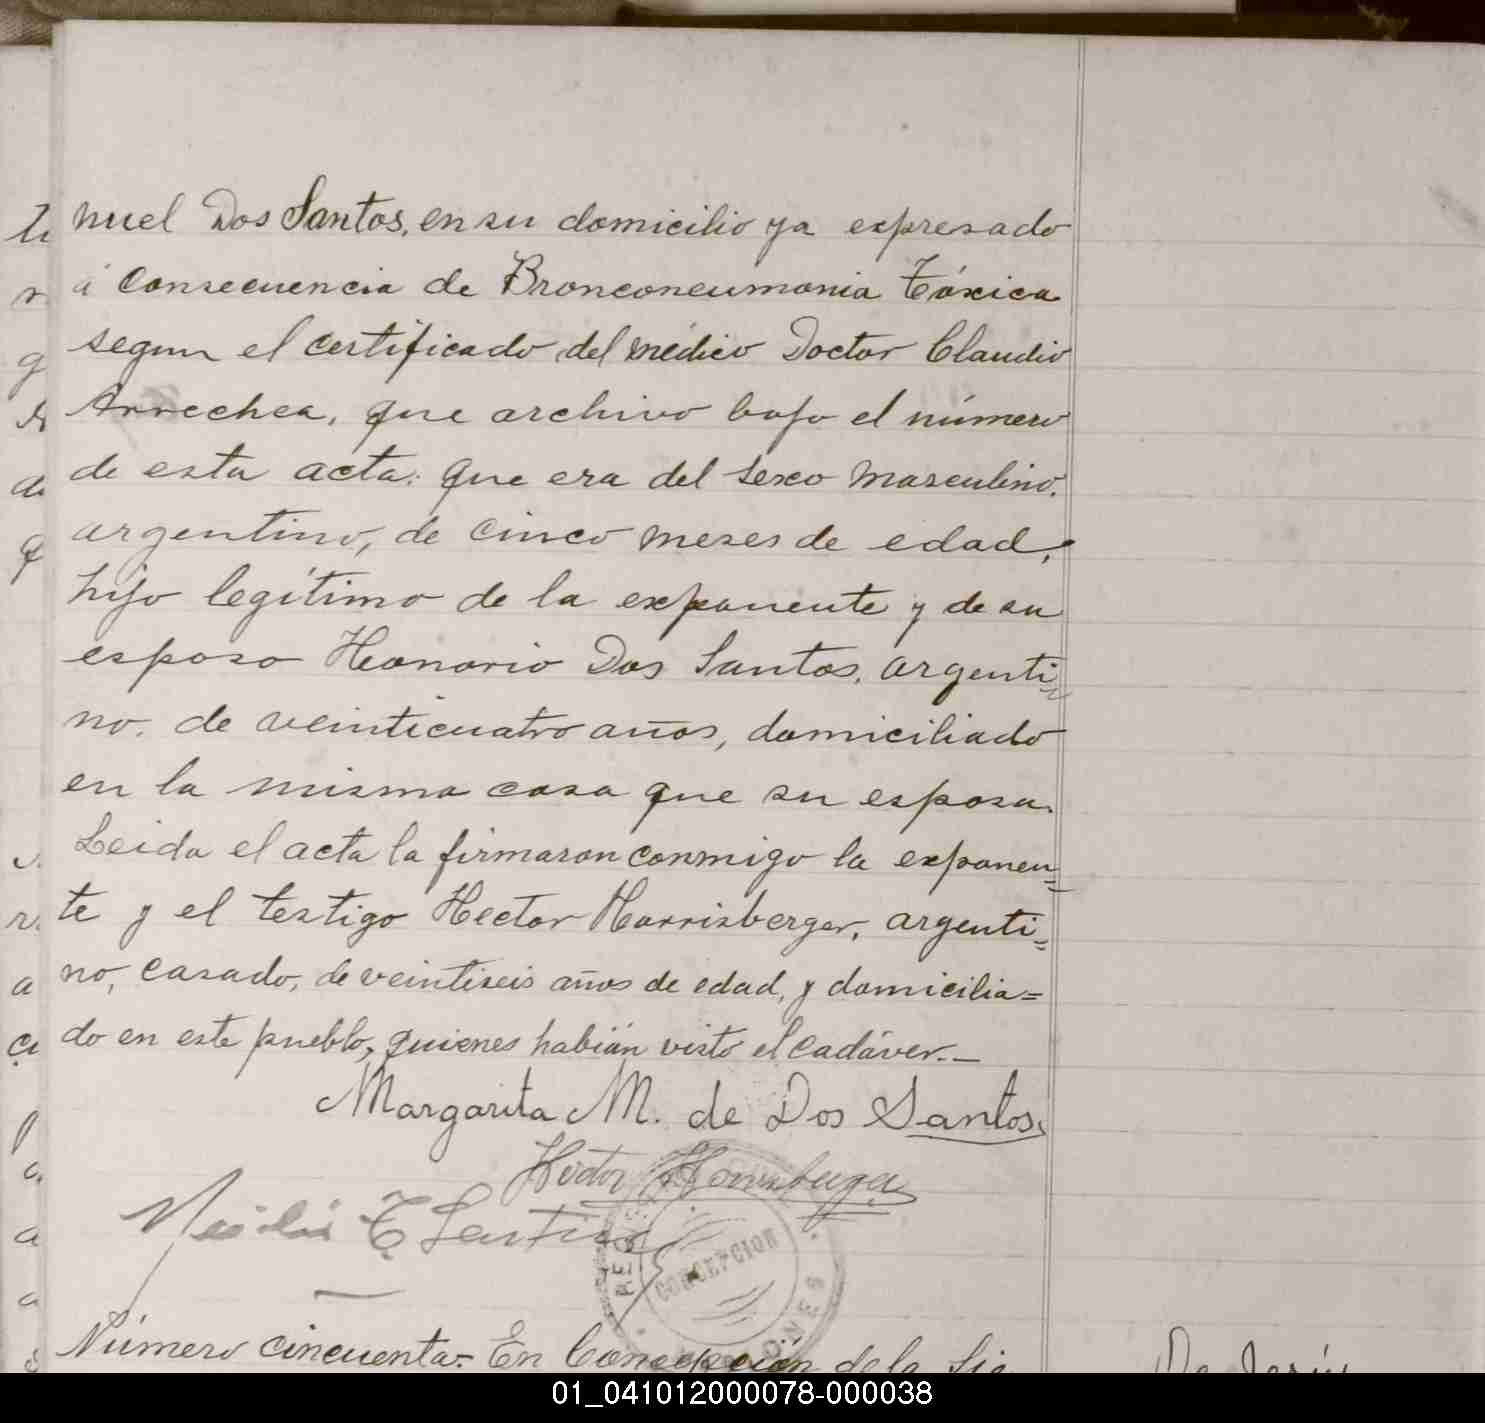 nuel Dos Santos, en su domicilio ya expresado
á consecuencia de Bronconeumonia Tóxica
segun el certificado del médico Doctor Claudio
Arrechea, que archivo bajo el número
de esta acta: que era del sexo masculino,
argentino, de cinco meses de edad,
hijo legítimo de la exponente y de su
esposo Honorio Dos Santos, argenti=
no, de veinticuatro años, domiciliado
en la misma casa que su esposa.
Leida el acta la firmaron conmigo la exponen=
te y el testigo Hector Harrisberger, argenti=
no, casado, de veintiseis años de edad, y domicilia=
do en este pueblo, quienes habián visto el cadáver.—
Margarita M. de Dos Santos
Hector
CONCEPCION
Número cincuenta.- En Concepción de la Sie
01_041012000078-000038